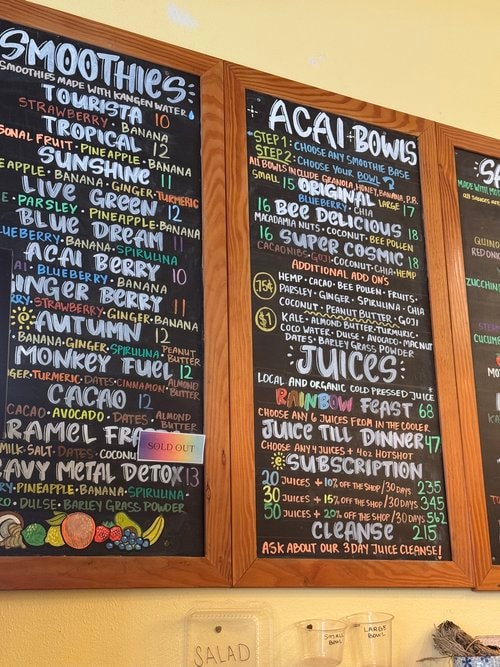 SMOOTHIES
SMOOTHIES MADE WITH KANGEN WATER
TOURISTA 10
STRAWBERRY • BANANA
TROPICAL 12
SONAL FRUIT • PINEAPPLE • BANANA
SUNSHINE 11
EAPPLE • BANANA • GINGER • TURMERIC
LIVE GREEN 12
E • PARSLEY • PINEAPPLE • BANANA
BLUE DREAM 11
UEBERRY • BANANA • SPIRULINA
ACAI BERRY 10
AI • BLUEBERRY • BANANA
INGER BERRY 11
RY • STRAWBERRY • GINGER • BANANA
AUTUMN 12
BANANA • GINGER • SPIRULINA • PEANUT BUTTER
MONKEY FUEL 12
GER • TURMERIC • DATES • CINNAMON • ALMOND BUTTER
CACAO 12
CACAO • AVOCADO • DATES • ALMOND BUTTER
RAMEL FRA
SOLD OUT
MILK • SALT • DATES • COCONU
EAVY METAL DETOX 13
RY • PINEAPPLE • BANANA • SPIRULINA •
RO • DULSE • BARLEY GRASS POWDER
ACAI BOWLS
STEP 1: CHOOSE ANY SMOOTHIE BASE
STEP 2: CHOOSE YOUR BOWL
ALL BOWLS INCLUDE GRANOLA, HONEY, BANANA, P.B.
SMALL 15 ORIGINAL LARGE 17
BLUEBERRY • CHIA
16 BEE DELICIOUS 18
MACADAMIA NUTS • COCONUT • BEE POLLEN
16 SUPER COSMIC 18
CACAO NIBS • GOJI • COCONUT • CHIA • HEMP
ADDITIONAL ADD ONS
75¢ HEMP • CACAO • BEE POLLEN • FRUITS •
PARSLEY • GINGER • SPIRULINA • CHIA
COCONUT • PEANUT BUTTER • GOJI
$1 KALE • ALMOND BUTTER • TURMERIC •
COCO WATER • DULSE • AVOCADO • MACNUT
DATES • BARLEY GRASS POWDER
JUICES
LOCAL AND ORGANIC COLD PRESSED JUICE
RAINBOW FEAST 68
CHOOSE ANY 6 JUICES FROM IN THE COOLER
JUICE TILL DINNER 47
CHOOSE ANY 4 JUICES + 4OZ HOTSHOT
SUBSCRIPTION
20 JUICES + 10% OFF THE SHOP / 30 DAYS 235
30 JUICES + 15% OFF THE SHOP / 30 DAYS 345
50 JUICES + 20% OFF THE SHOP / 30 DAYS 562
CLEANSE 215
ASK ABOUT OUR 3 DAY JUICE CLEANSE!
SA
MADE WITH
QUINO
RED ON
ZUCCHIN
CUCUMB
SALAD
SMALL BOWL
LARGE BOWL